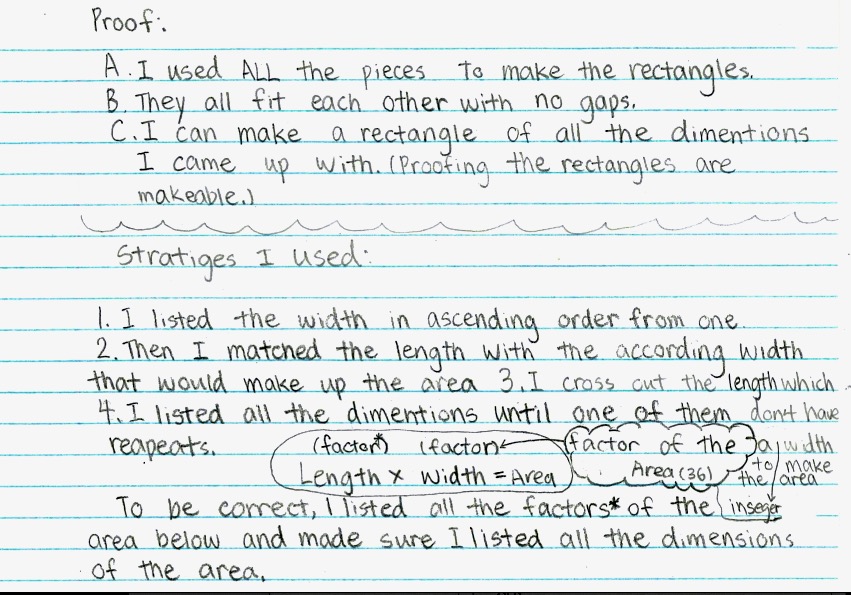 Proof:
A. I used ALL the pieces to make the rectangles.
B. They all fit each other with no gaps.
C. I can make a rectangle of all the dimentions
I came up with. (Proofing the rectangles are
makeable.)
Stratiges I used:
1. I listed the width in ascending order from one.
2. Then I matched the length with the according width
that would make up the area 3. I cross out the length which
4. I listed all the dimentions until one of them don't have
reapeats. (factor*) (factor) factor of the a width
Length x width = Area Area (36) to make
the area
To be correct, I listed all the factors* of the inseger
area below and made sure I listed all the dimensions
of the area.